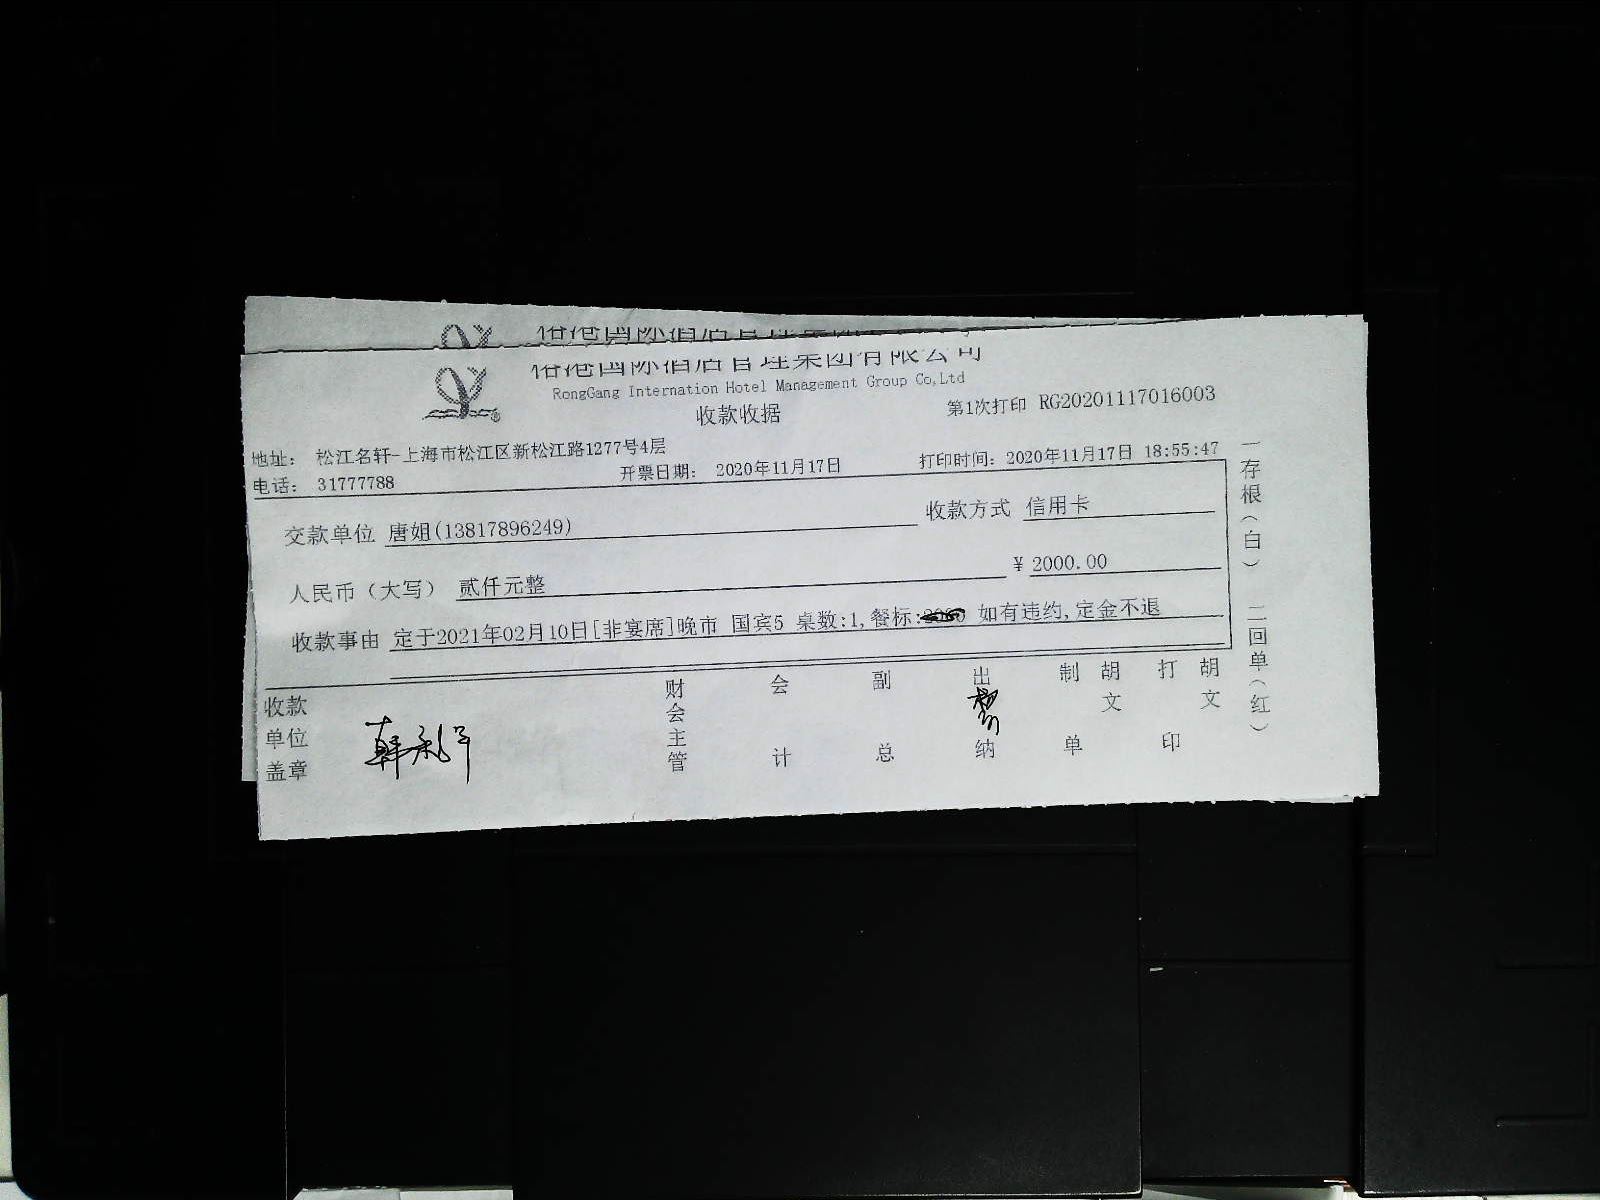 国际酒店管理集团有限公司
RongGang Internation Hotel Management Group Co,Ltd
收款收据
第1次打印 RG20201117016003
地址： 松江名轩-上海市松江区新松江路1277号4层
电话： 31777788
开票日期： 2020年11月17日
打印时间：2020年11月17日 18:55:47
交款单位 唐姐(13817896249)
收款方式 信用卡
人民币（大写） 贰仟元整
￥2000.00
收款事由 定于2021年02月10日[非宴席]晚市 国宾5 桌数:1,餐标: 如有违约,定金不退
收款单位盖章
财会主管
会计
副总
出纳
制单 胡文
打印 胡文
一存根（白） 二回单（红）